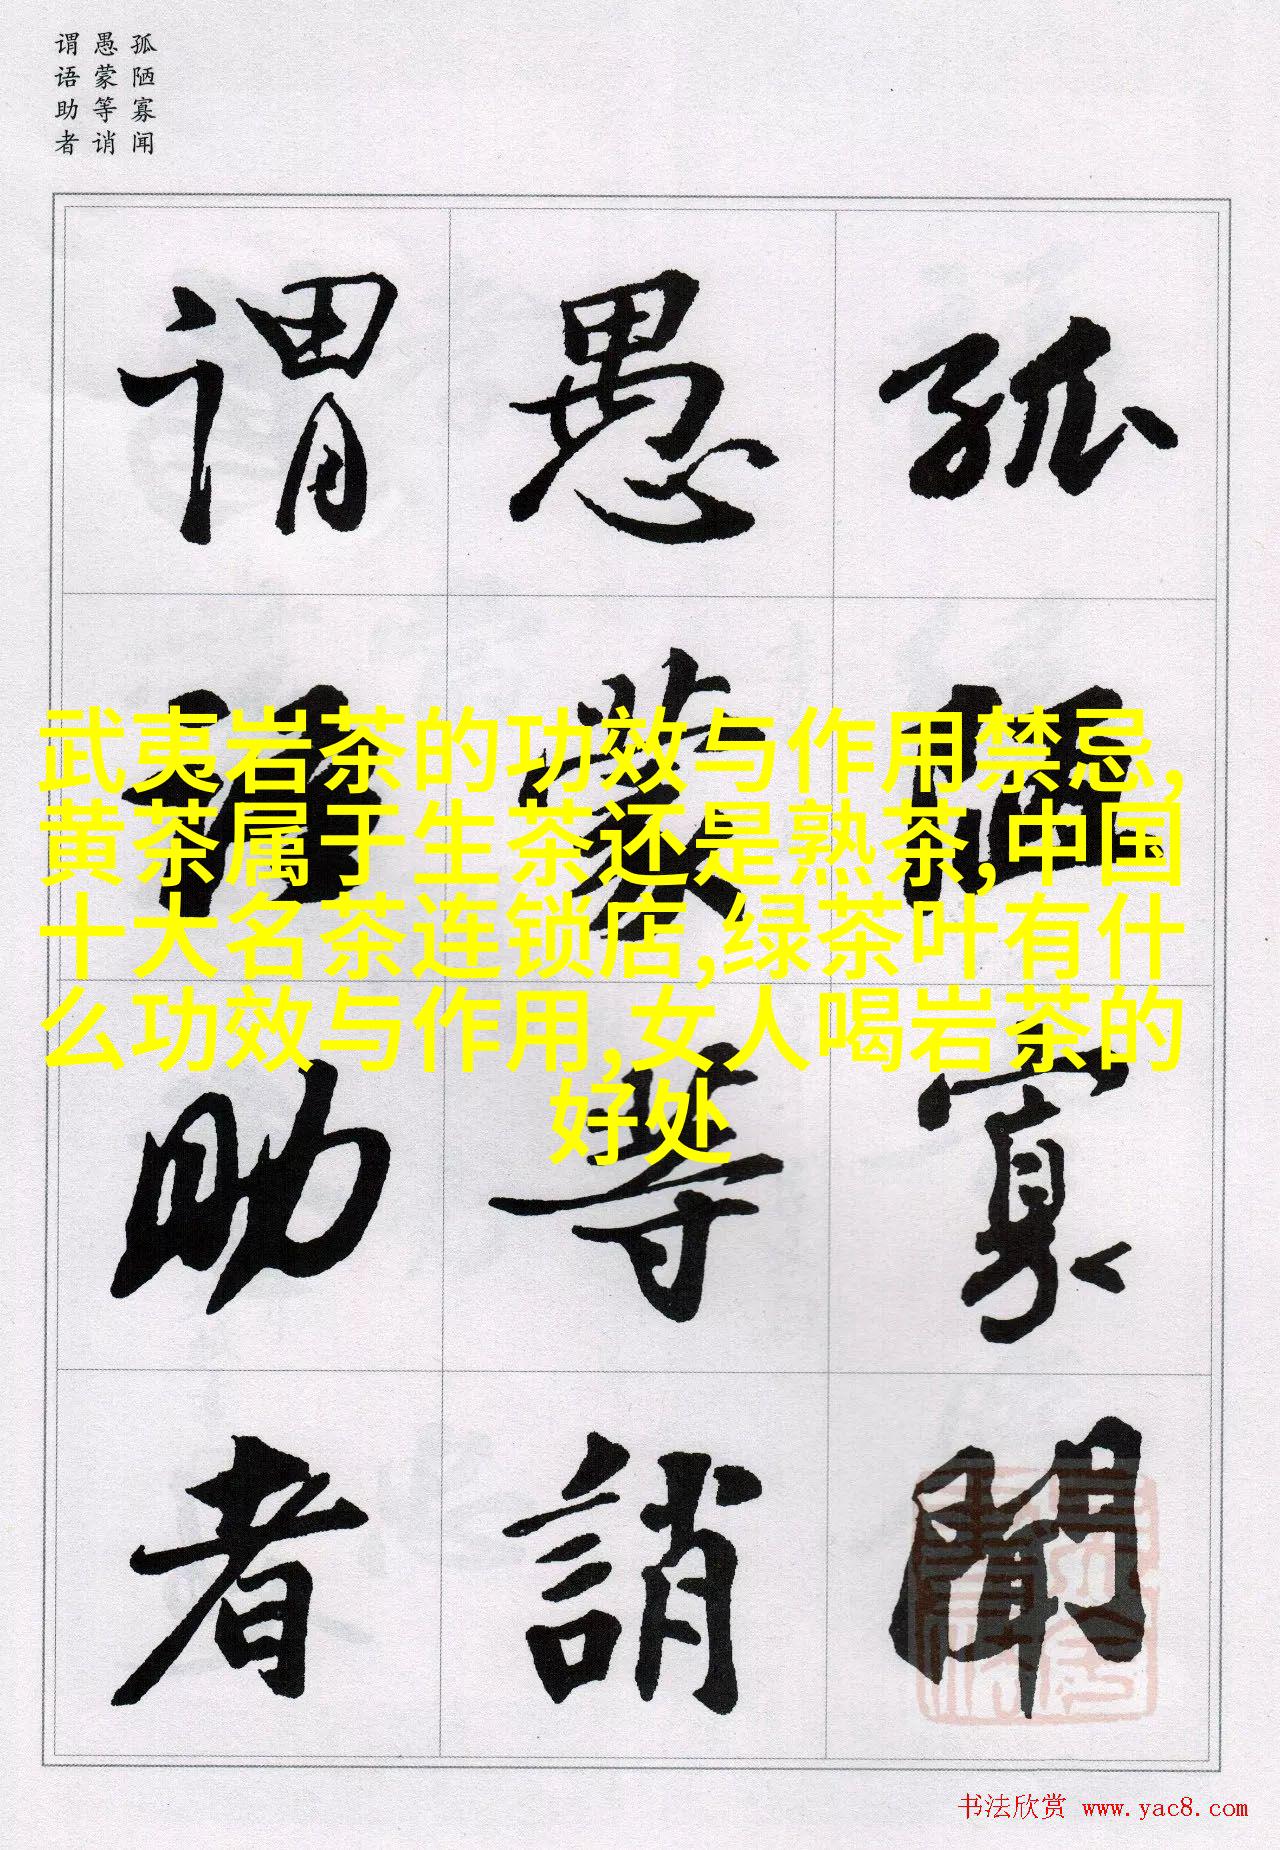 孤陋寡闻
愚蒙等诮
谓语助者
孤陋寡聞
愚蒙等誚
谓语助者
武夷岩茶的功效与作用禁忌,
黄茶属于生茶还是熟茶,中国
十大名茶连锁店,绿茶叶有什
么功效与作用,女人喝岩茶的
好处
书法欣赏 www.yac8.com